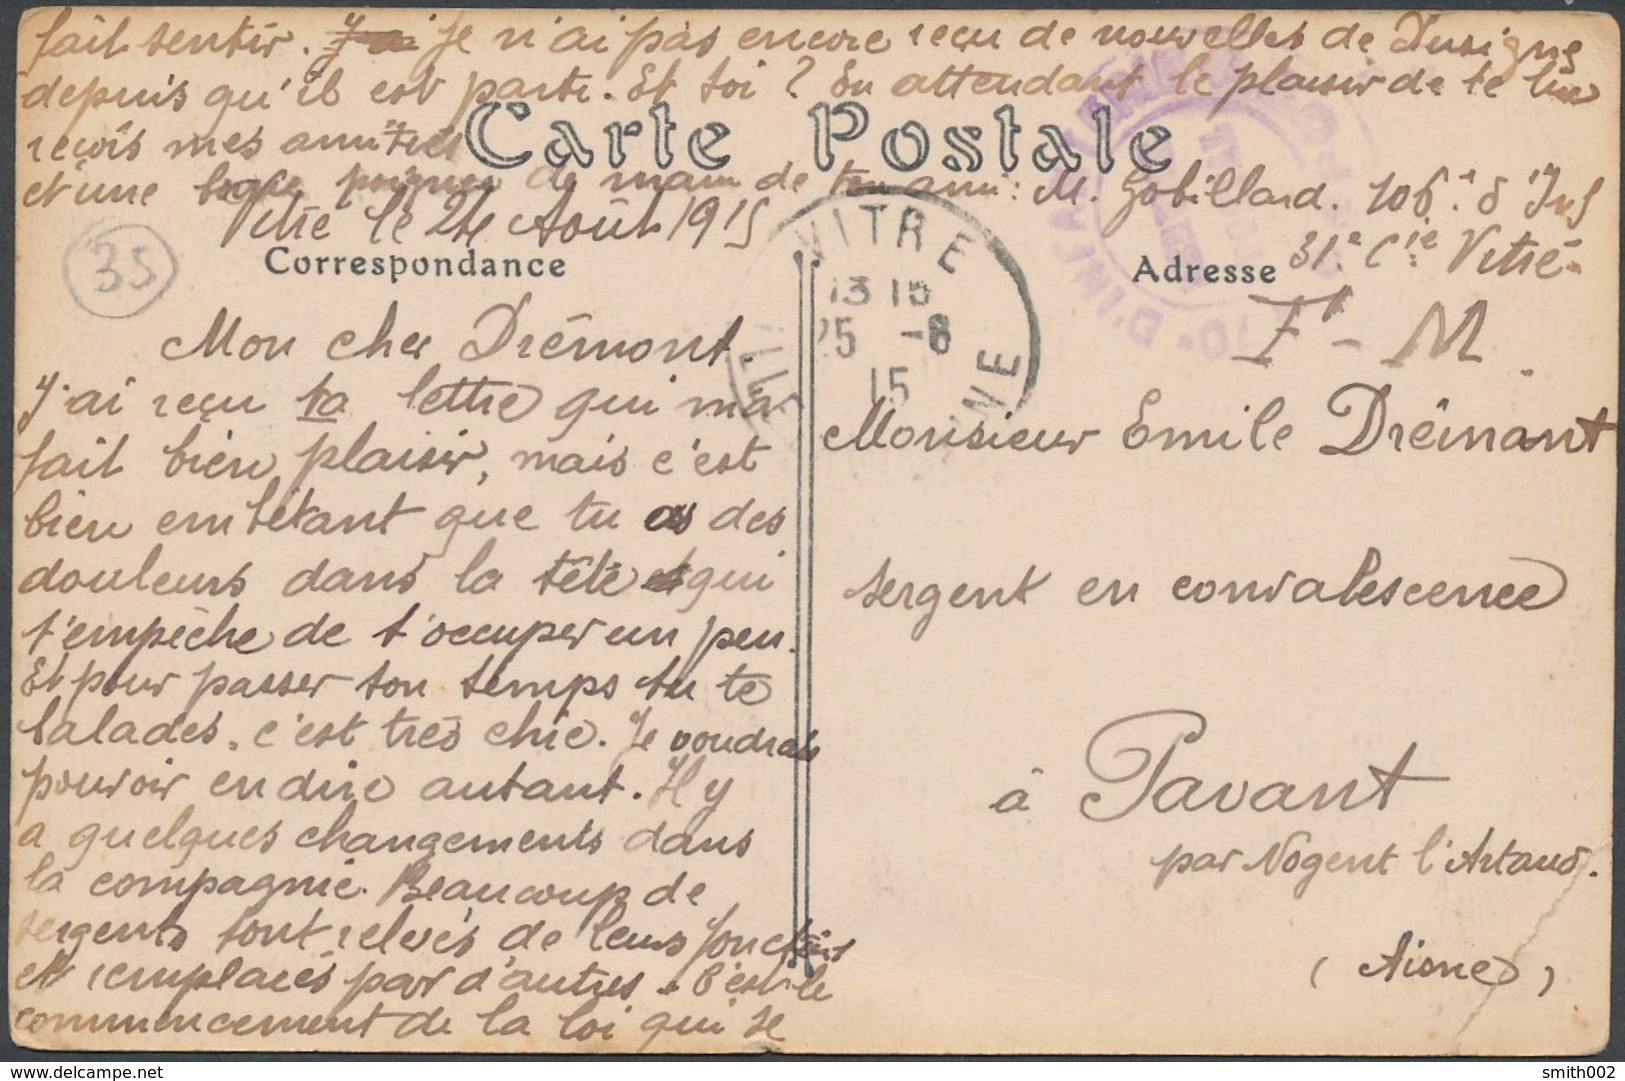 fait sentir. Je n'ai pas encore reçu de nouvelles de
depuis qu'il est parti. Et toi ? En attendant le plaisir de te lire
reçois mes amitiés
Carte Postale
et une bonne poignée de main de ton ami : M. Gobillard. 106e d'Inf
31e Cie Vitré.
Vitré le 24 Août 1915
35
Correspondance
Adresse
VITRE
13 15
25 -8
15
F - M
Mon cher Drémont.
J'ai reçu ta lettre qui m'a
fait bien plaisir, mais c'est
bien embêtant que tu as des
douleurs dans la tête et qui
t'empêche de t'occuper un peu.
Et pour passer ton temps tu te
balades, c'est très chic. Je voudrais
pouvoir en dire autant. Il y
a quelques changements dans
la compagnie. Beaucoup de
sergents sont relevés de leurs fonctions
et remplacés par d'autres. C'est le
commencement de la loi qui se
Monsieur Emile Drémont
sergent en convalescence
à Pavant
par Nogent l'Artaud.
(Aisne)
smith002